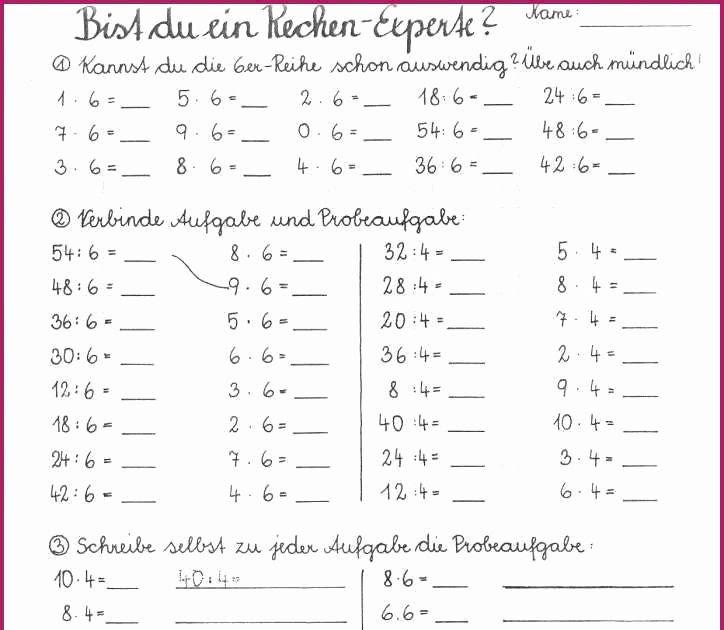 Bist du ein Rechen-Experte? Name: ____
① Kannst du die 6er-Reihe schon auswendig? Übe auch mündlich!
1 · 6 = ___ 5 · 6 = ___ 2 · 6 = ___ 18 : 6 = ___ 24 : 6 = ___
7 · 6 = ___ 9 · 6 = ___ 0 · 6 = ___ 54 : 6 = ___ 48 : 6 = ___
3 · 6 = ___ 8 · 6 = ___ 4 · 6 = ___ 36 : 6 = ___ 42 : 6 = ___
② Verbinde Aufgabe und Probeaufgabe:
54 : 6 = ___ 8 · 6 = ___ 32 : 4 = ___ 5 · 4 = ___
48 : 6 = ___ 9 · 6 = ___ 28 : 4 = ___ 8 · 4 = ___
36 : 6 = ___ 5 · 6 = ___ 20 : 4 = ___ 7 · 4 = ___
30 : 6 = ___ 6 · 6 = ___ 36 : 4 = ___ 2 · 4 = ___
12 : 6 = ___ 3 · 6 = ___ 8 : 4 = ___ 9 · 4 = ___
18 : 6 = ___ 2 · 6 = ___ 40 : 4 = ___ 10 · 4 = ___
24 : 6 = ___ 7 · 6 = ___ 24 : 4 = ___ 3 · 4 = ___
42 : 6 = ___ 4 · 6 = ___ 12 : 4 = ___ 6 · 4 = ___
③ Schreibe selbst zu jeder Aufgabe die Probeaufgabe:
10 · 4 = ___ 40 : 4 = ___ 8 · 6 = ___ ___
8 · 4 = ___ ___ 6 . 6 = ___ ___